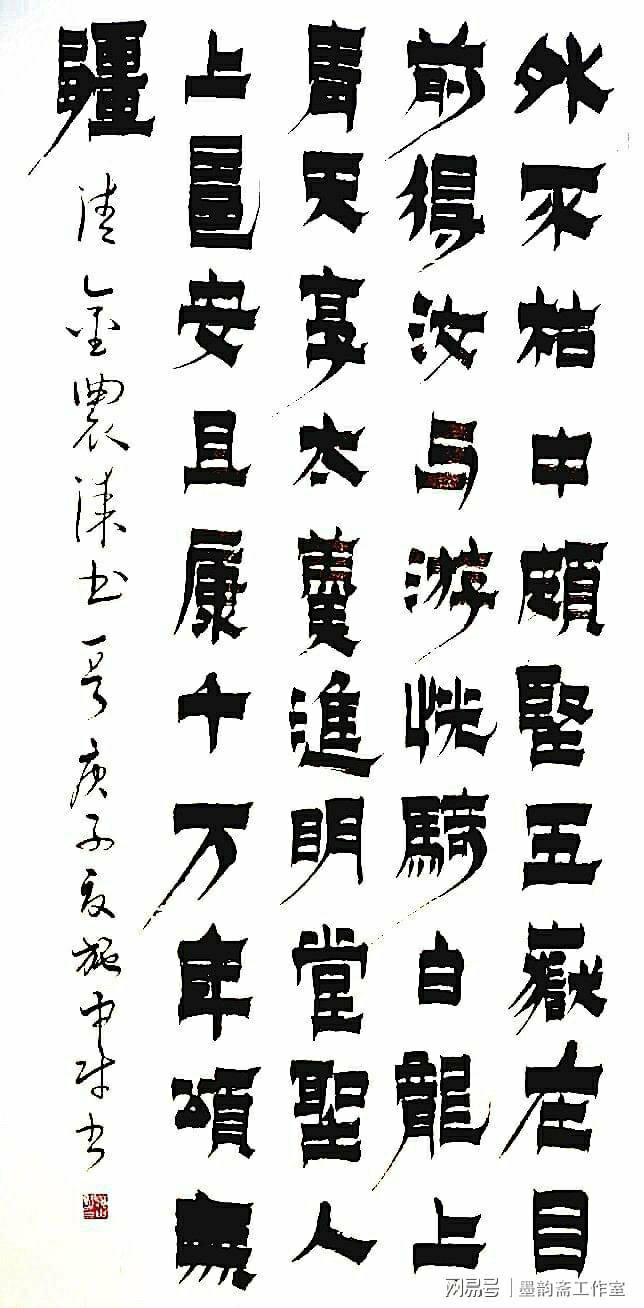 外不枯中頗堅五嶽在目
前得汝与游恍騎自龍上
青天享太羹進明堂聖人
上邑安且康千万年頌無
疆
清金農漆书一号庚子夏施申书
网易号 | 墨韵斋工作室